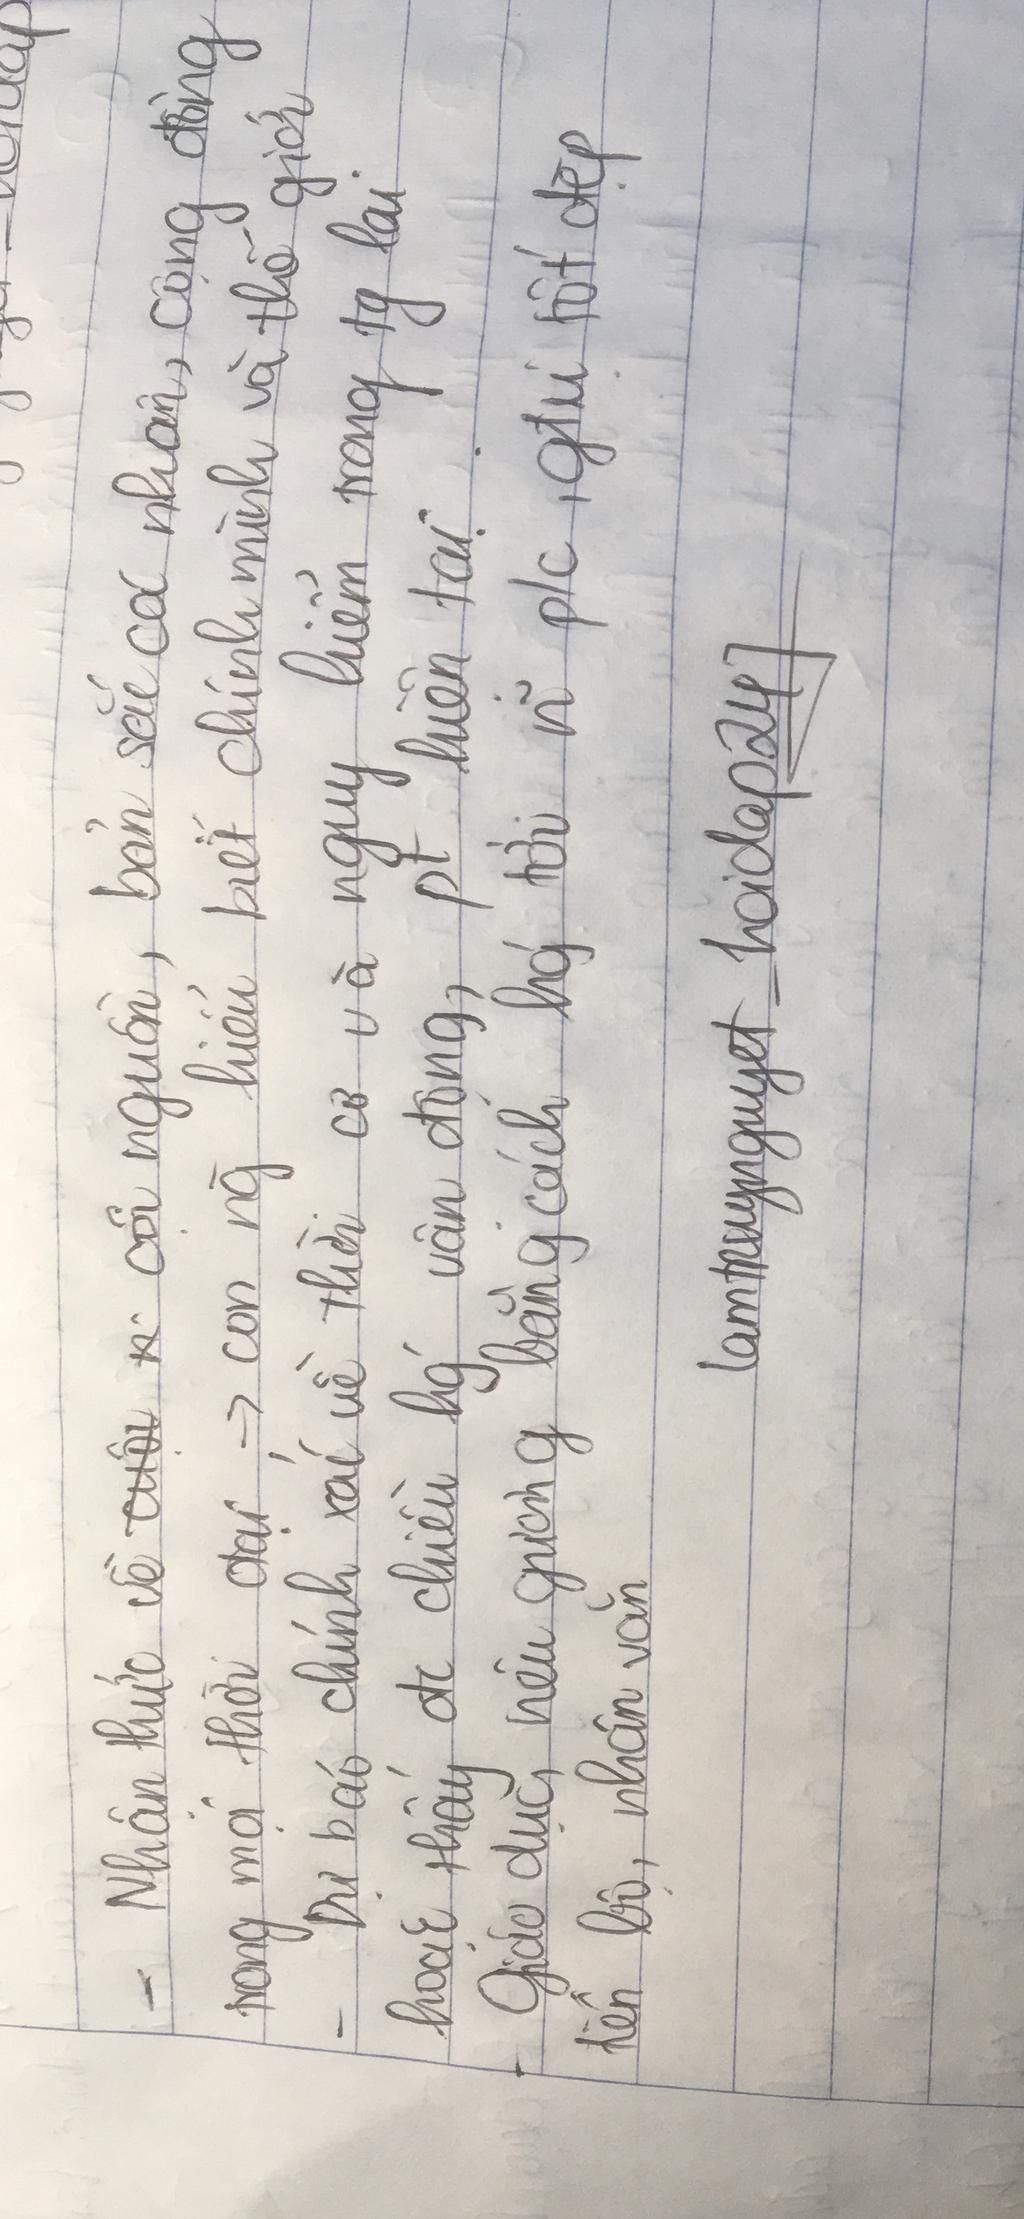 - Nhận thức về cội nguồn, bản sắc cá nhân, cộng đồng
trong mọi thời đại → con ng hiểu biết chính mình và thế giới
- Dự báo chính xác về thời cơ và nguy hiểm trong tg lai
hoặc thấy đc chiều hg vận động, pt hiện tại.
- Giáo dục, nêu gương bằng cách hg tới n~ p/c, gtrị tốt đẹp
tiến bộ, nhân văn
lamtruynguyet_hoidap247